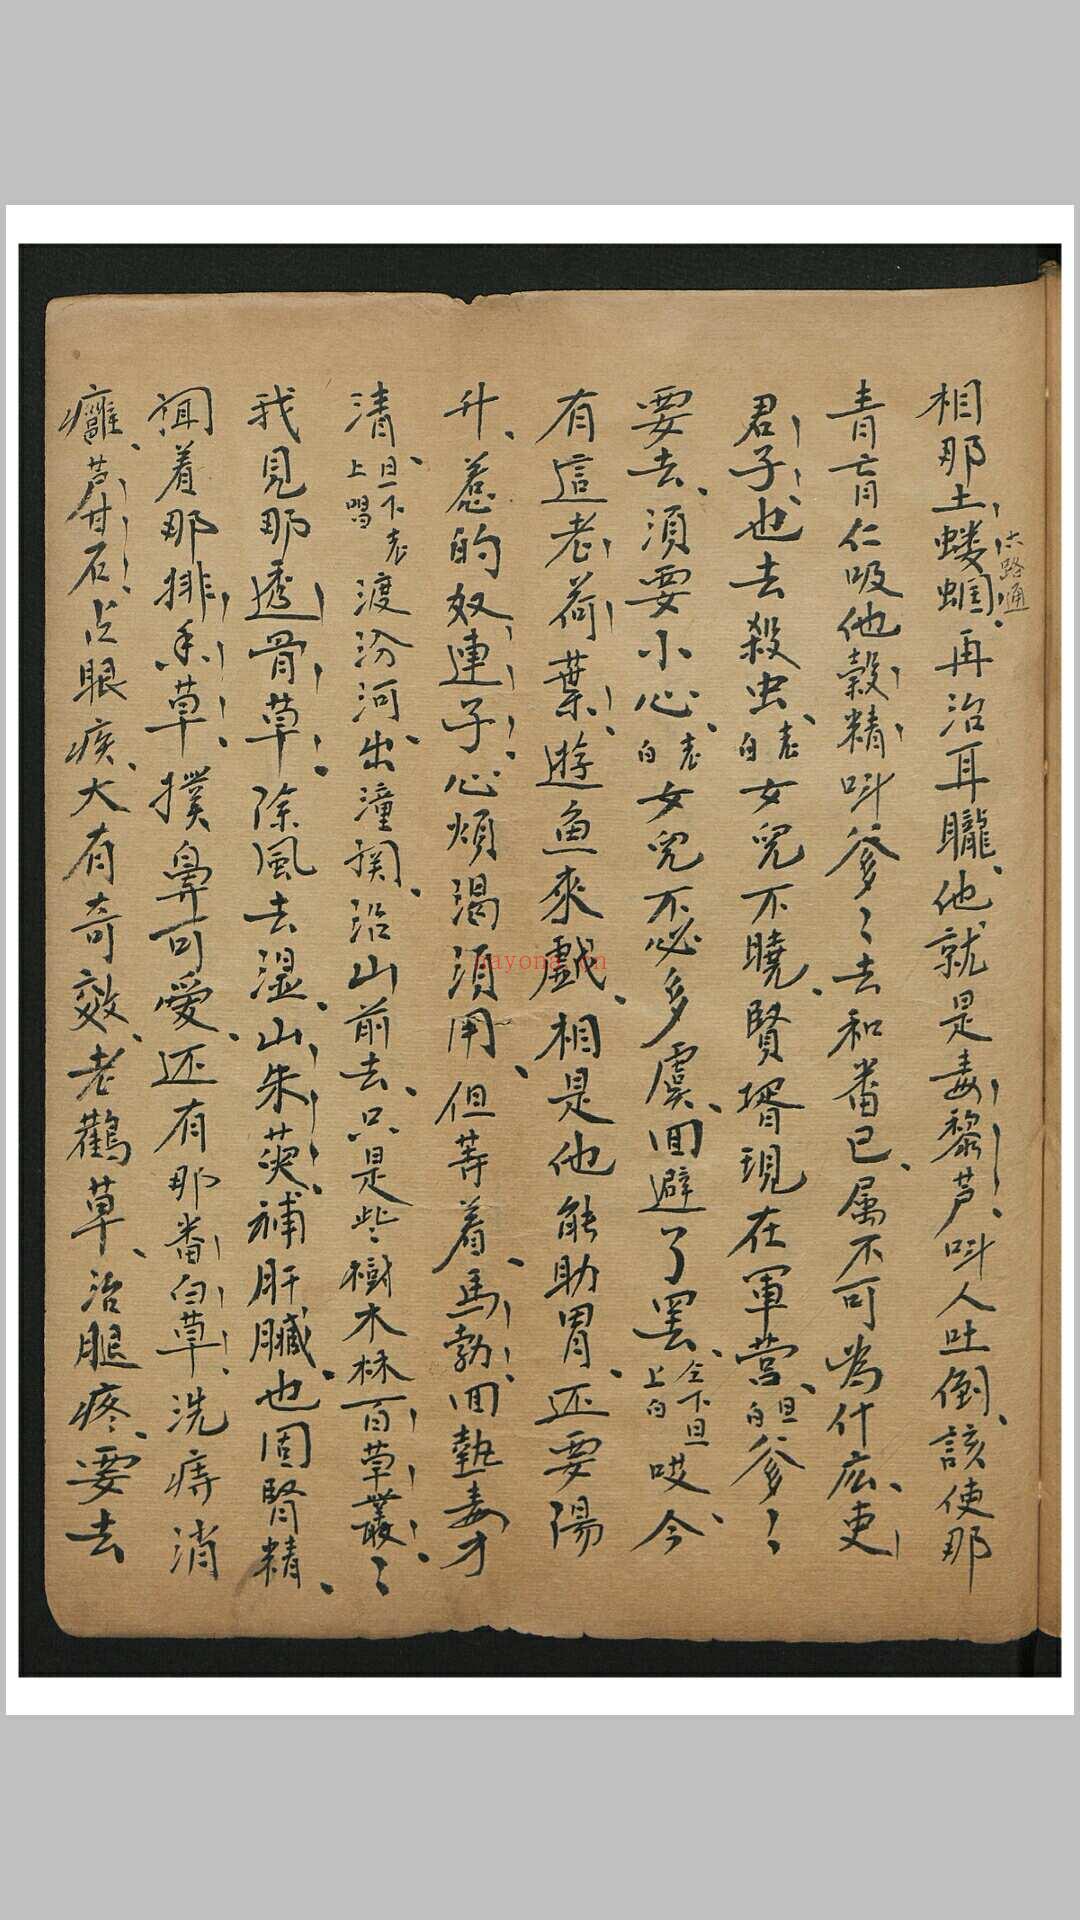 相那土蝼蝈再治耳朧他就是毒黎芦叫人吐倒該使那
六路通
青盲仁吸他穀精叫爹〻去和番已属不可為什広吏
君子也去殺虫老白女兒不曉賢壻現在軍营旦白爹〻
要去須要小心老白女兒不必多虞囬避了罢仝下旦上白哎今
有這老荷葉遊魚來戯相是他能助胃还要陽
升惹的奴連子心煩渴須用但等着馬勃囬熱毒才
清旦下老上唱渡汾河出潼関沿山前去只是些樹木林百草叢〻
我見那透骨草除風去湿山朱萸補肝臟也固腎精
聞着那排香草撲鼻可愛还有那番白草洗痔消
癰芦甘石点眼疾大有奇效老鸛草治腿疼要去
nayona.cn